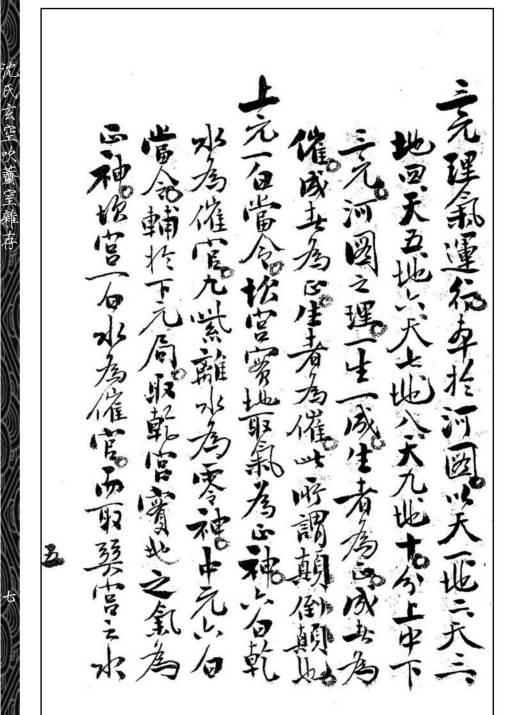 三元理氣運行。本於河圖。以天一地二天三
地四天五地六天七地八天九地十。分上中下
三元。河圖之理。一生一成。生者為正。成者為
催。成者為正。生者為催。此所謂顛倒顛也。
上元一白當令。坎宮實地取氣為正神。六白乾
水為催官。九紫離水為零神。中元六白
當令。輔於下元局。取乾宮實地之氣為
正神。坎宮一白水為催官。而取巽宮之水
五
沈氏玄空吹虀室雜存
七